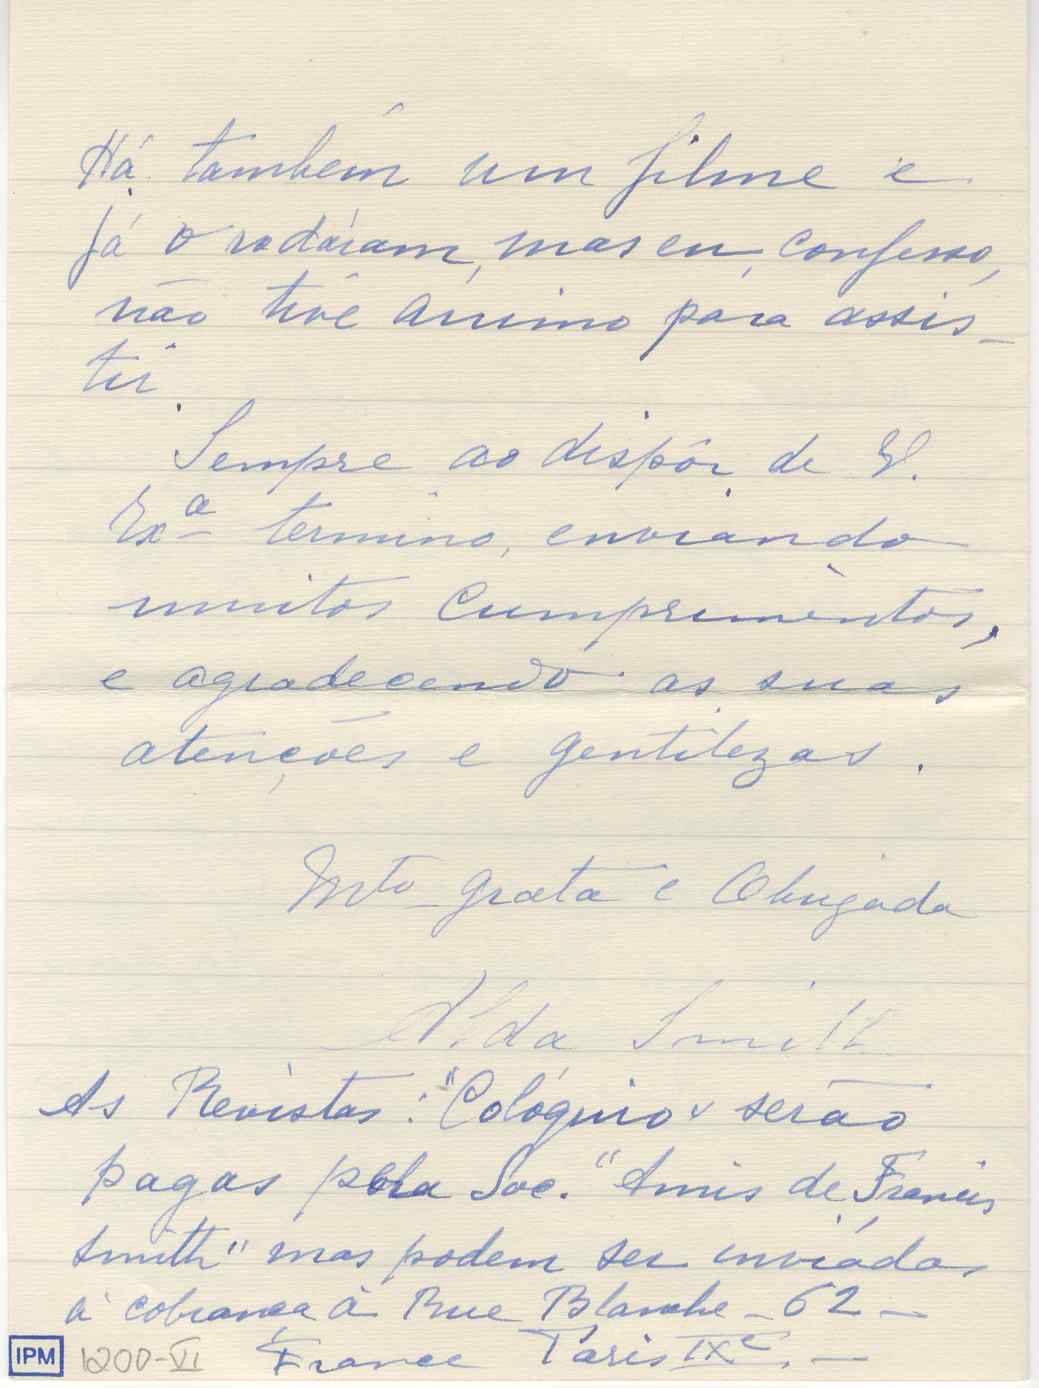 Há também um filme e
já o rodáram, mas eu, confesso,
não tive ânimo para assis-
tir.
Sempre ao dispôr de V.
Exª termino, enviando
muitos cumprimêntos,
e agradecendo as suas
atenções e gentilezas.
Mto grata e Obrigada
Alda Smith
As Revistas: "Colóquio" serão
pagas pela Soc. "Amis de Francis
Smith" mas podem ser inviádas
à cobrança à Rue Blanche - 62 -
France Paris IXe. -
IPM 1200-VI